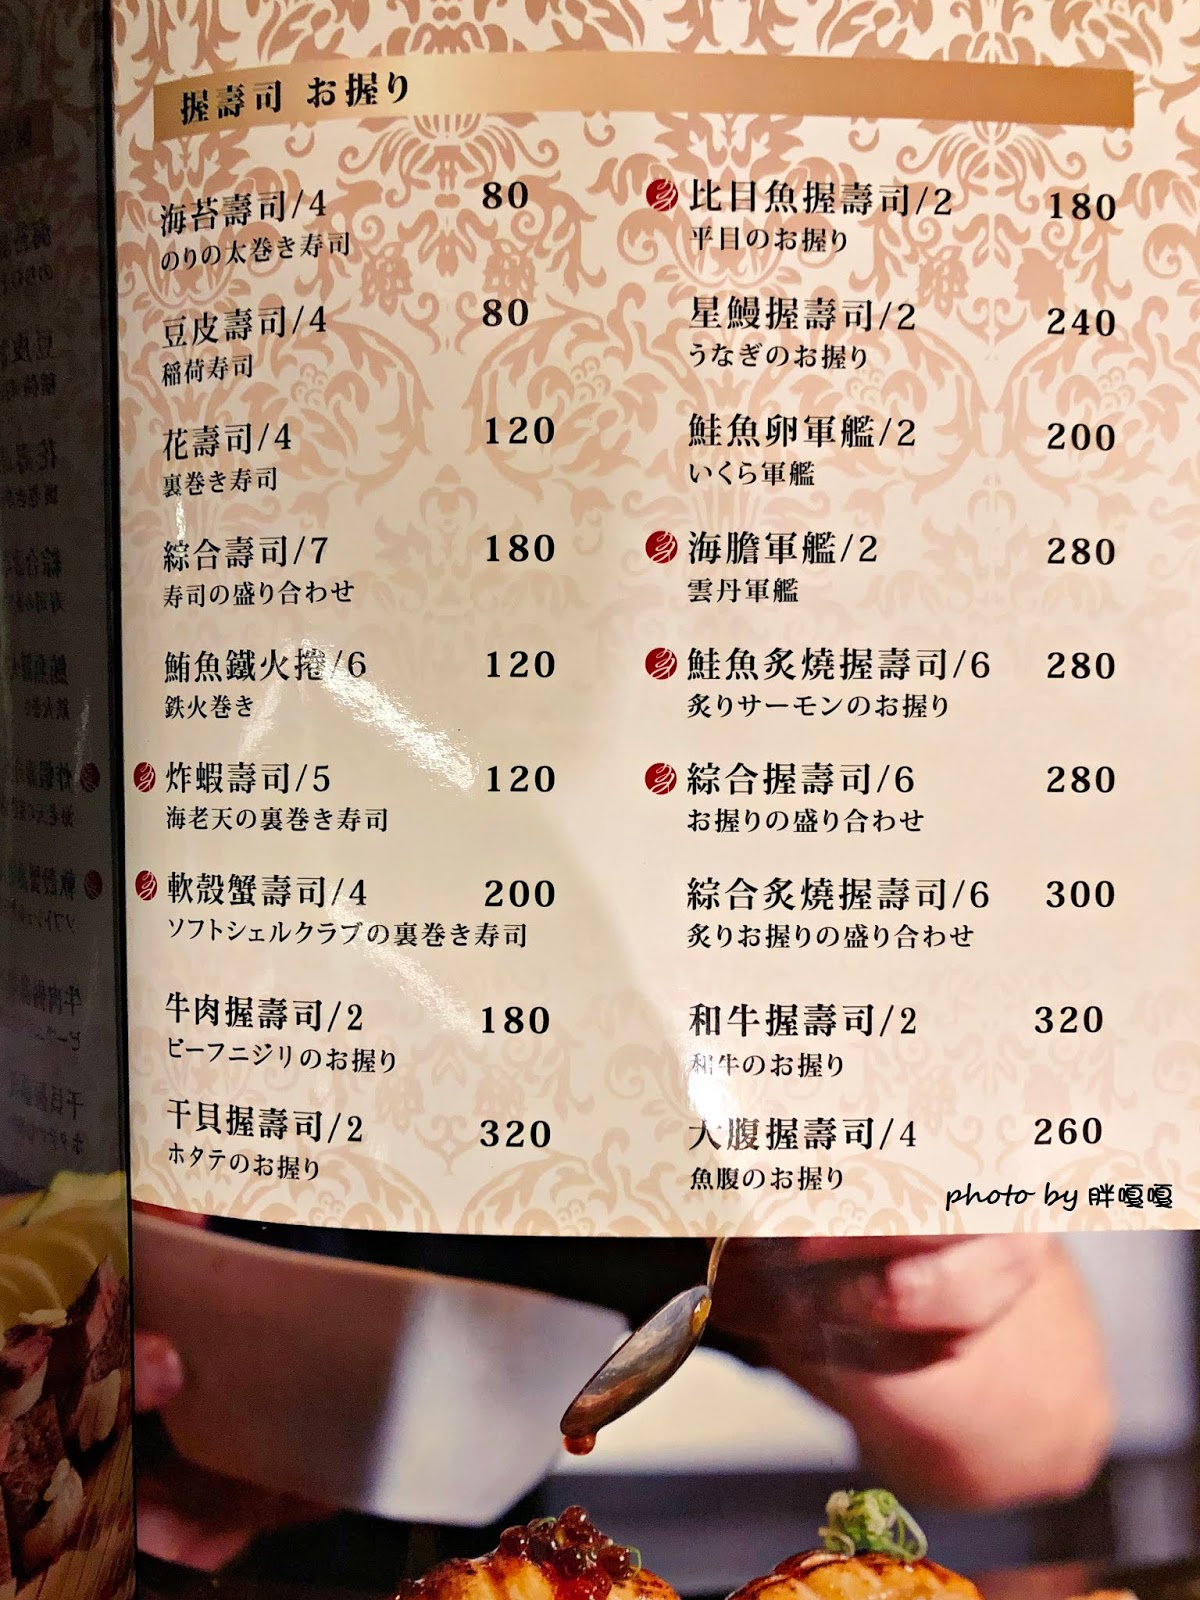 握壽司 お握り
海苔壽司/4 80
のりの太巻き寿司
豆皮壽司/4 80
稲荷寿司
花壽司/4 120
裏巻き寿司
綜合壽司/7 180
寿司の盛り合わせ
鮪魚鐵火捲/6 120
鉄火巻き
炸蝦壽司/5 120
海老天の裏巻き寿司
軟殼蟹壽司/4 200
ソフトシェルクラブの裏巻き寿司
牛肉握壽司/2 180
ビーフニジリのお握り
干貝握壽司/2 320
ホタテのお握り
比目魚握壽司/2 180
平目のお握り
星鰻握壽司/2 240
うなぎのお握り
鮭魚卵軍艦/2 200
いくら軍艦
海膽軍艦/2 280
雲丹軍艦
鮭魚炙燒握壽司/6 280
炙りサーモンのお握り
綜合握壽司/6 280
お握りの盛り合わせ
綜合炙燒握壽司/6 300
炙りお握りの盛り合わせ
和牛握壽司/2 320
和牛のお握り
大腹握壽司/4 260
魚腹のお握り
photo by 胖嘎嘎